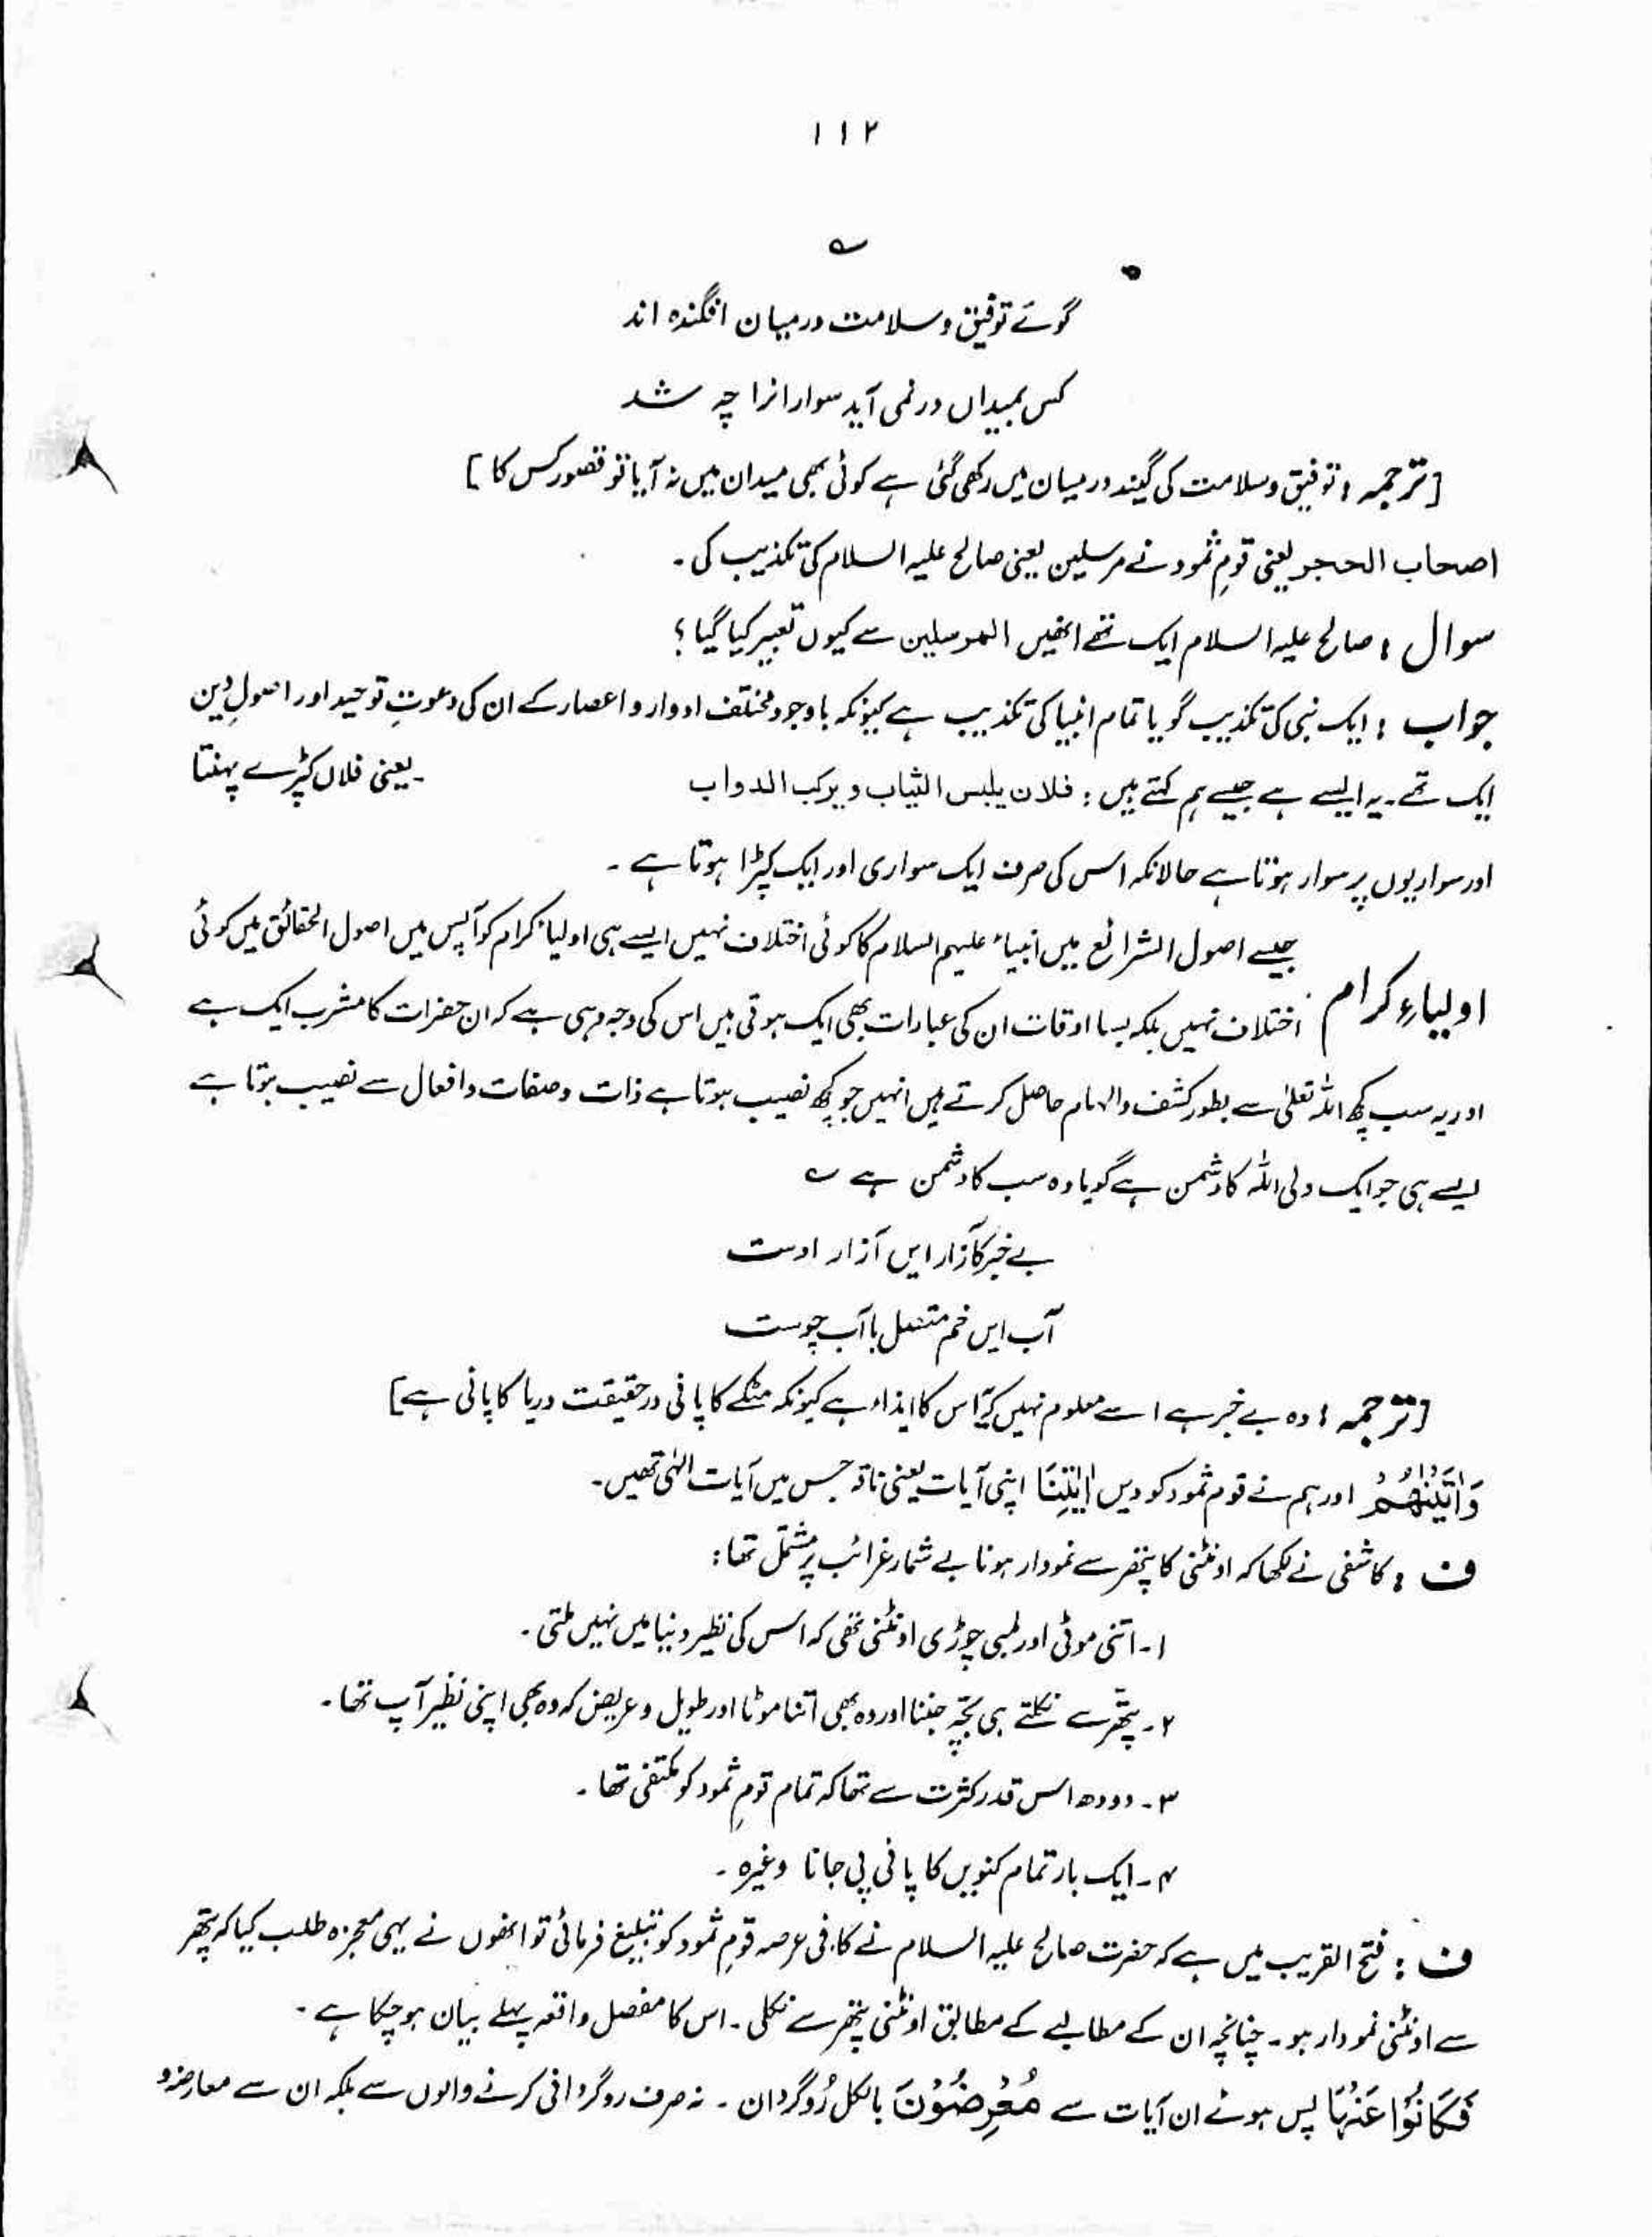 ۱۱۲
؎
گوئے توفیق و سلامت درمیان افگندہ اند
کس بمیداں در نمی آید سوارانرا چہ شد
[ترجمہ : توفیق و سلامت کی گیند درمیان میں رکھی گئی ہے کوئی بھی میدان میں نہ آیا تو قصور کس کا ]
اصحاب الحجر یعنی قومِ ثمود نے مرسلین یعنی صالح علیہ السلام کی تکذیب کی ۔
سوال : صالح علیہ السلام ایک تھے انھیں المرسلین سے کیوں تعبیر کیا گیا ؟
جواب : ایک نبی کی تکذیب گویا تمام انبیا کی تکذیب ہے کیونکہ باوجود مختلف ادوار و اعصار کے ان کی دعوتِ توحید اور اصولِ دین
ایک تھے ۔ یہ ایسے ہے جیسے ہم کہتے ہیں : فلان یلبس الثیاب و یرکب الدواب ۔ یعنی فلاں کپڑے پہنتا
اور سواریوں پر سوار ہوتا ہے حالانکہ اس کی صرف ایک سواری اور ایک کپڑا ہوتا ہے ۔
جیسے اصول الشرائع میں انبیاء علیہم السلام کا کوئی اختلاف نہیں ایسے ہی اولیاء کرام کو آپس میں اصول الحقائق میں کوئی
اولیاءِ کرام اختلاف نہیں بلکہ بسا اوقات ان کی عبارات بھی ایک ہوتی ہیں اس کی وجہ وہی ہے کہ ان حضرات کا مشرب ایک ہے
اور یہ سب کچھ اللہ تعلیٰ سے بطور کشف و الہام حاصل کرتے ہیں انہیں جو کچھ نصیب ہوتا ہے ذات و صفات و افعال سے نصیب ہوتا ہے
ایسے ہی جو ایک ولی اللہ کا دشمن ہے گویا وہ سب کا دشمن ہے ؎
بے خبر کآزار ایں آزار اوست
آب ایں خم متصل با آب جوست
[ترجمہ : وہ بے خبر ہے اسے معلوم نہیں کہ اس کا ایذاء ہے کیونکہ مٹکے کا پانی درحقیقت دریا کا پانی ہے]
وَاٰتَیْنٰھُمْ اور ہم نے قوم ثمود کو دیں اٰیٰتِنَا اپنی آیات یعنی ناقہ جس میں آیات الٰہی تھیں۔
ف : کاشفی نے لکھا کہ اونٹنی کا پتھر سے نمودار ہونا بے شمار غرائب پر مشتمل تھا :
۱ ۔ اتنی موٹی اور لمبی چوڑی اونٹنی تھی کہ اس کی نظیر دنیا میں نہیں ملتی ۔
۲ ۔ پتھر سے نکلتے ہی بچّہ جننا اور وہ بھی اتنا موٹا اور طویل و عریض کہ وہ بھی اپنی نظیر آپ تھا ۔
۳ ۔ دودھ اس قدر کثرت سے تھا کہ تمام قومِ ثمود کو مکتفی تھا ۔
۴ ۔ ایک بار تمام کنویں کا پانی پی جانا وغیرہ ۔
ف : فتح القریب میں ہے کہ حضرت صالح علیہ السلام نے کافی عرصہ قومِ ثمود کو تبلیغ فرمائی تو انھوں نے یہی معجزہ طلب کیا کہ پتھر
سے اونٹنی نمودار ہو ۔ چنانچہ ان کے مطالبے کے مطابق اونٹنی پتھر سے نکلی ۔ اس کا مفصل واقعہ پہلے بیان ہو چکا ہے ۔
فَکَانُوْا عَنْہَا پس ہوئے ان آیات سے مُعْرِضُوْنَ بالکل رُوگردان ۔ نہ صرف روگردانی کرنے والوں سے بلکہ ان سے معارضہ و